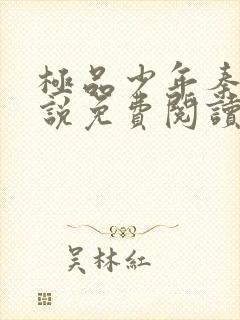 極品少年秦
說免費閱讀
吴林紅